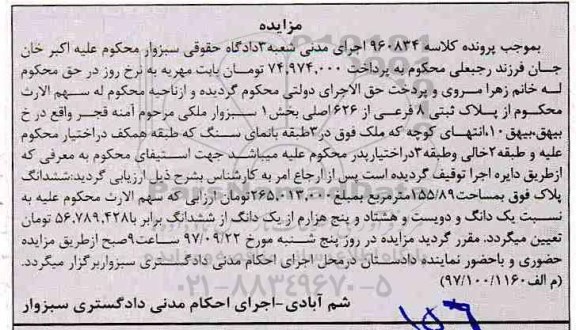 مزایده
بموجب پرونده کلاسه ۹۶۰۸۳۴ اجرای مدنی شعبه۳دادگاه حقوقی سبزوار محکوم علیه اکبر خان
جان فرزند رجبعلی محکوم به پرداخت ۷۴,۹۷۴,۰۰۰ تومان بابت مهریه به نرخ روز در حق محکوم
له خانم زهرا مروی و پردخت حق الاجرای دولتی محکوم گردیده و ازناحیه محکوم له سهم الارث
محکوم از پلاک ثبتی ۸ فرعی از ۶۲۶ اصلی بخش۱ سبزوار ملکی مرحوم آمنه قجر واقع در خ
بیهق،بیهق۱۰،انتهای کوچه که ملک فوق در۳طبقه بانمای سنگ که طبقه همکف دراختیار محکوم
علیه و طبقه۲خالی وطبقه۳دراختیارپدر محکوم علیه میباشد جهت استیفای محکوم به معرفی که
ازطریق دایره اجرا توقیف گردیده است پس ازارجاع امر به کارشناس بشرح ذیل ارزیابی گردید:ششدانگ
پلاک فوق بمساحت۱۵۵/۸۹مترمربع بمبلغ ۲۶۵,۰۱۳,۰۰۰تومان ارزیابی که سهم الارث محکوم علیه به
نسبت یک دانگ و دویست و هشتاد و پنج هزارم از یک دانگ از ششدانگ برابر با۵۶,۷۸۹,۴۲۸ تومان
تعیین میگردد. مقرر گردید مزایده در روز پنج شنبه مورخ ۹۷/۰۹/۲۲ ساعت۹صبح ازطریق مزایده
حضوری و باحضور نماینده دادستان درمحل اجرای احکام مدنی دادگستری سبزواربرگزار میگردد.
(م الف ۹۷/۱۰۰/۱۱۶۰)
شم آبادی-اجرای احکام مدنی دادگستری سبزوار
۰۲۱-۸۸۳۴۹۶۷۰-۵